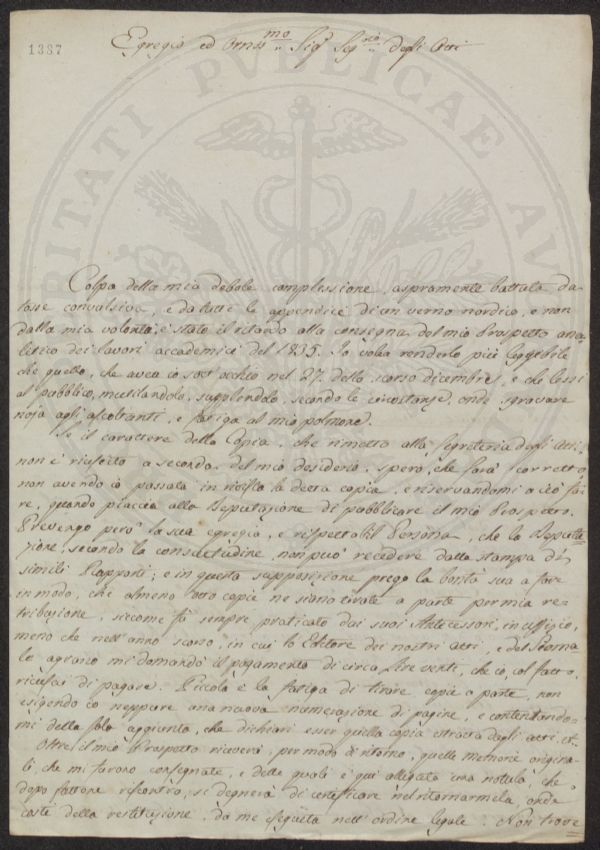 1387
Egregio ed Ornss.mo Sig.r Seg.rio degli Atti
Colpa della mia debole complessione, aspramente battuta da
tosse convulsiva, e da tutte le appendici di un verno nordico, e non
dalla mia volontà, è stato il ritardo alla consegna del mio Prospetto ana-
litico dei lavori accademici del 1835. Io volea renderlo più leggibile
che quello, che avea io sott'occhio nel 27. dello scorso dicembre, e che lessi
al pubblico, mutilandolo, supplendolo, secondo le circostanze, onde sgravare
noja agli ascoltanti, e fatiga al mio polmone.
Se il carattere della Copia, che rimetto alla Segreteria degli Atti,
non è riuscito a seconda del mio desiderio, spero, che sarà corretto
non avendo io passata in rivista la detta copia, e riservandomi a ciò fa-
re, quando piaccia alla Deputazione di pubblicare il mio Prospetto.
Prevengo però la sua egregia, e rispettabil Persona, che la Deputa-
zione, secondo la consuetudine, non può recedere dalla stampa di
simili Rapporti; e in questa supposizione prego la bontà sua a fare
in modo, che almeno otto copie ne siano tirate a parte per mia re-
tribuzione, siccome fù sempre praticato dai suoi Antecessori in uffizio,
meno che nell'anno scorso, in cui lo Editore dei nostri atti, e del Giorna-
le agrario mi domandò il pagamento di circa lire venti, che io, col fatto,
ricusai di pagare. Piccola è la fatiga di tirare copie a parte, non
esigendo io neppure una nuova numerazione di pagine, e contentando-
mi della sola aggiunta, che dichiari esser quella copia estratta dagli atti, &.
Oltre il mio Prospetto riceverà, per modo di ritorno, quelle memorie origina-
li, che mi furono consegnate, e delle quali è qui allegata una notula, che,
dopo fattone riscontro, si degnerà di certificare nel ritornarmela, onde
costi della restituzione da me seguita nell'ordine legale. Non trove